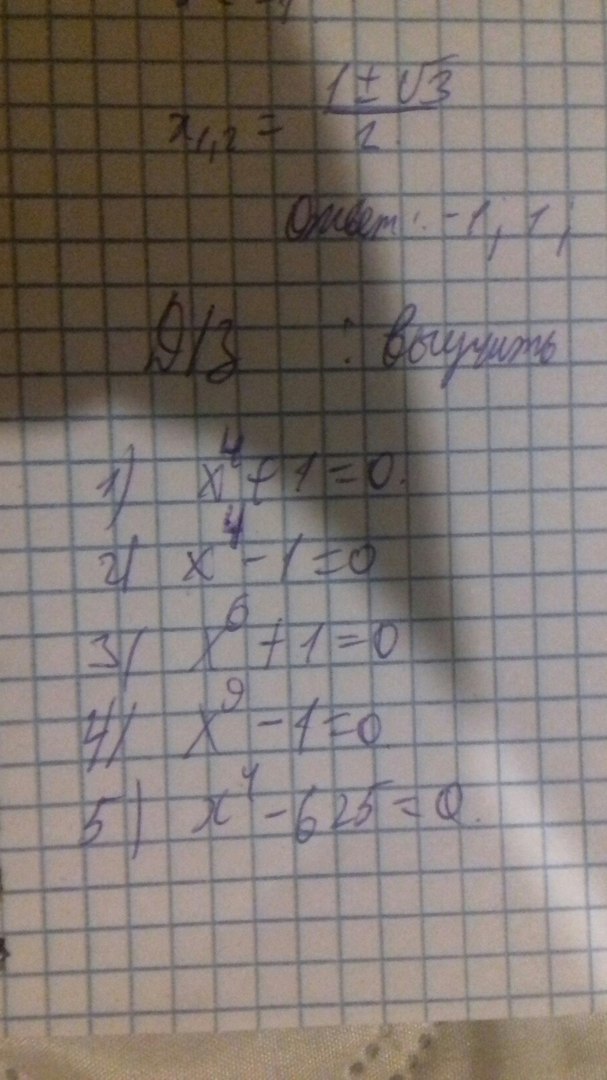 x₁,₂ = (1 ± √3)/2
Ответ: -1; 1;
Д/З : Выучить
1) x⁴ + 1 = 0.
2) x⁴ - 1 = 0
3) x⁶ + 1 = 0
4) x⁹ - 1 = 0
5) x⁴ - 625 = 0.